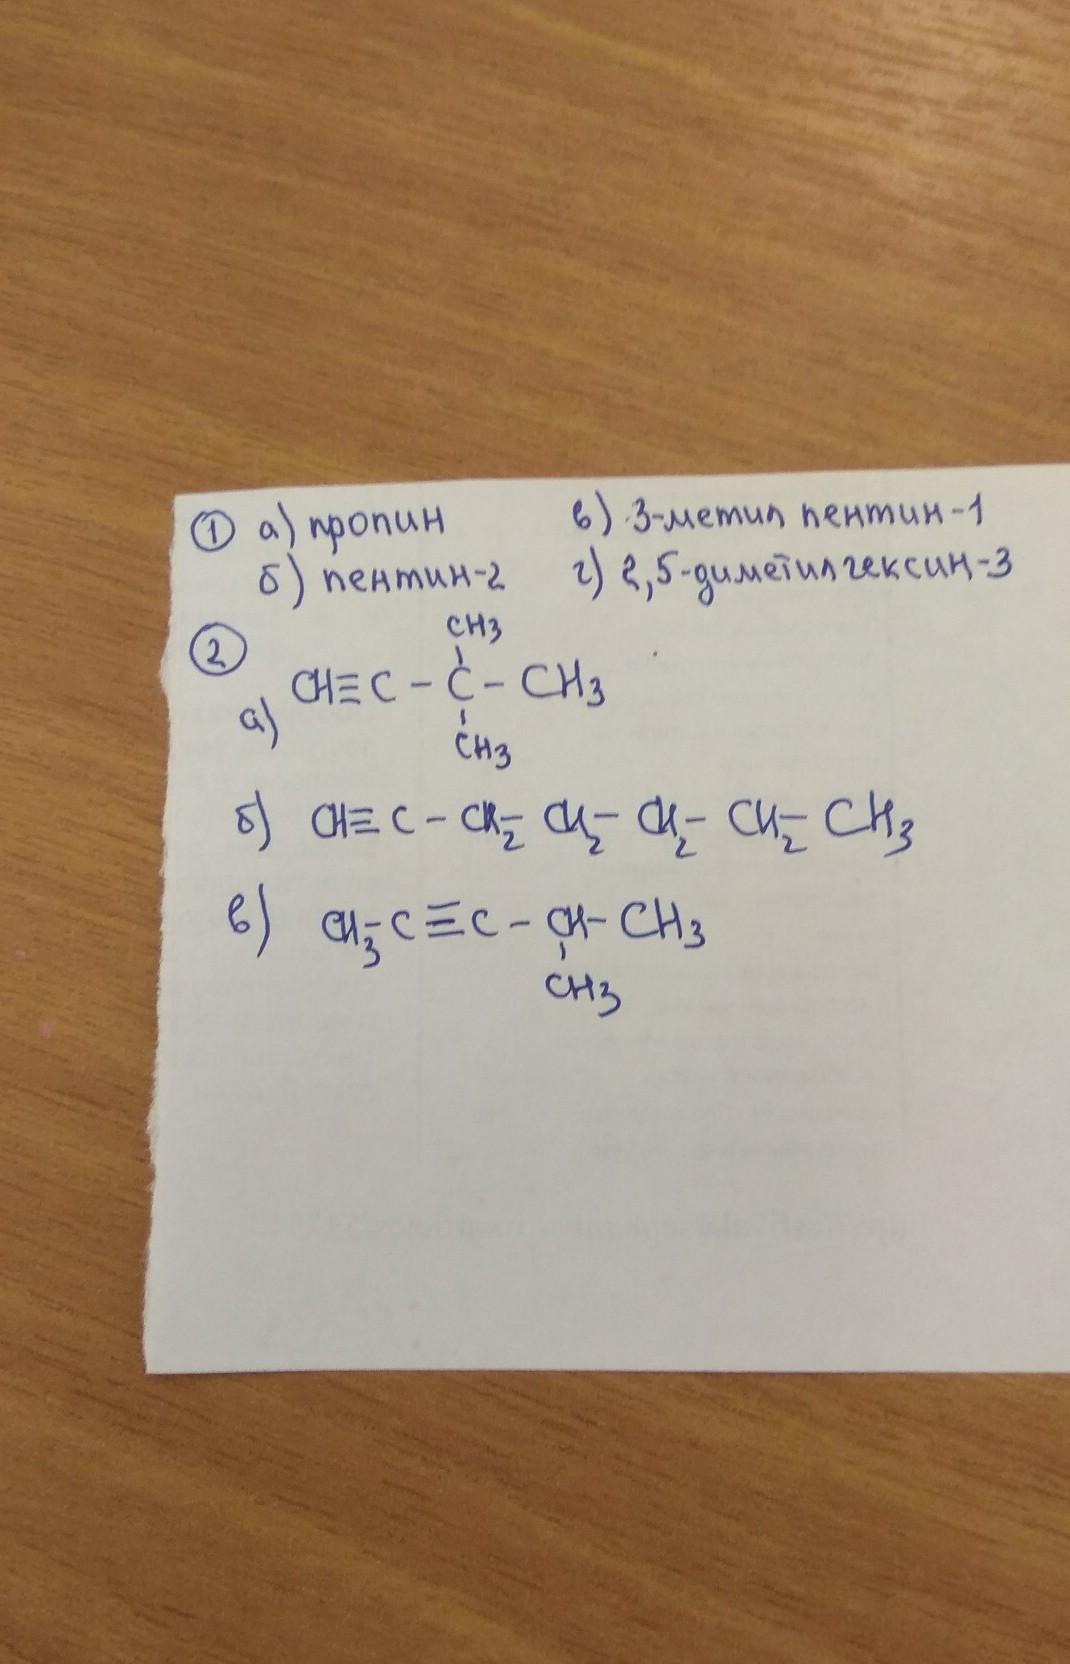 ① а) пропин в) 3-метил пентин-1
б) пентин-2 г) 2,5-диметилгексин-3
②
CH3
а) CH≡C - C - CH3
CH3
б) CH≡C - CH2- CH2- CH2- CH2- CH3
в) CH3- C≡C - CH- CH3
CH3